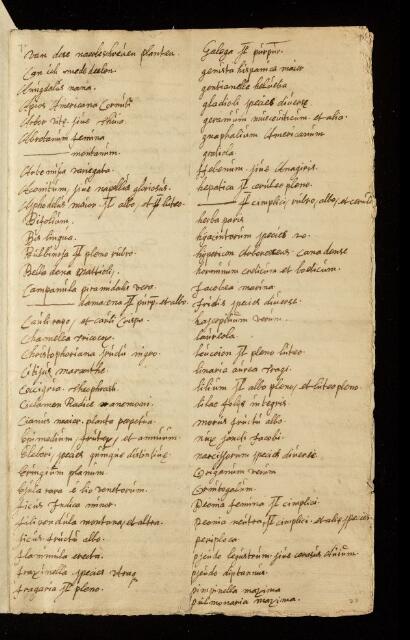 Van dese naeschreven planten
Can ick mede deelen.
Amigdalus nana.
Apios Americana Cornuti
Arbor vite, sive Thuia
Abrotanum femina
montanum.
Artemisia variegata.
Aconitum, sive napellus gloriosus.
Asphodelus maior fl albo, et fl luteo.
Bis lingua.
fl pleno rubro.
Bella dona Mattioli.
Campanula piramidalis vera.
fl purp et albo.
Caulirapo, et Cauli Crispo.
Chamelea tricoccos.
Christophoriana fructu nigro.
Citisus maranthe.
Theophrasti.
Ciclamen Radice anemones.
Cianus maior, planta perpetua.
Epimedium
Elebori, species quinque distinctae.
Eringium planum.
ficus Indica minor.
filipendula montana, et altra.
ficus fructu albo.
flammula erecta.
fraxinella species
fragaria fl pleno.
Galega fl purpur.
genista hispanica maior
gentianella helvetica
gladioli species diverse.
geranium et alia.
gnaphalium Americanum
gratiola.
sive Anagiris.
hepatica fl ceruleo pleno.
fl simplici, rubro, albo, et ceruleo
herba paris
hyacintorum species 20.
hypericon canadense
horminum creticum et boeticum.
Jacobea marina.
Iridis species diverse.
verum.
laureola.
leucoion fl pleno luteo.
linaria aurea tragi.
lilium fl albo pleno, et luteo pleno.
lilac foliis integris.
morus fructu albo.
nux sancti Jacobi.
narcissorum species diverse.
Origanum verum.
Ornitogalum.
Peonia femina fl simplici.
Peonia neutra, fl simplici, et alie species.
periploca.
pseudo ligustrum, sive cerasus
pseudo diptamus.
pimpinella maxima
pulmonaria maxima.